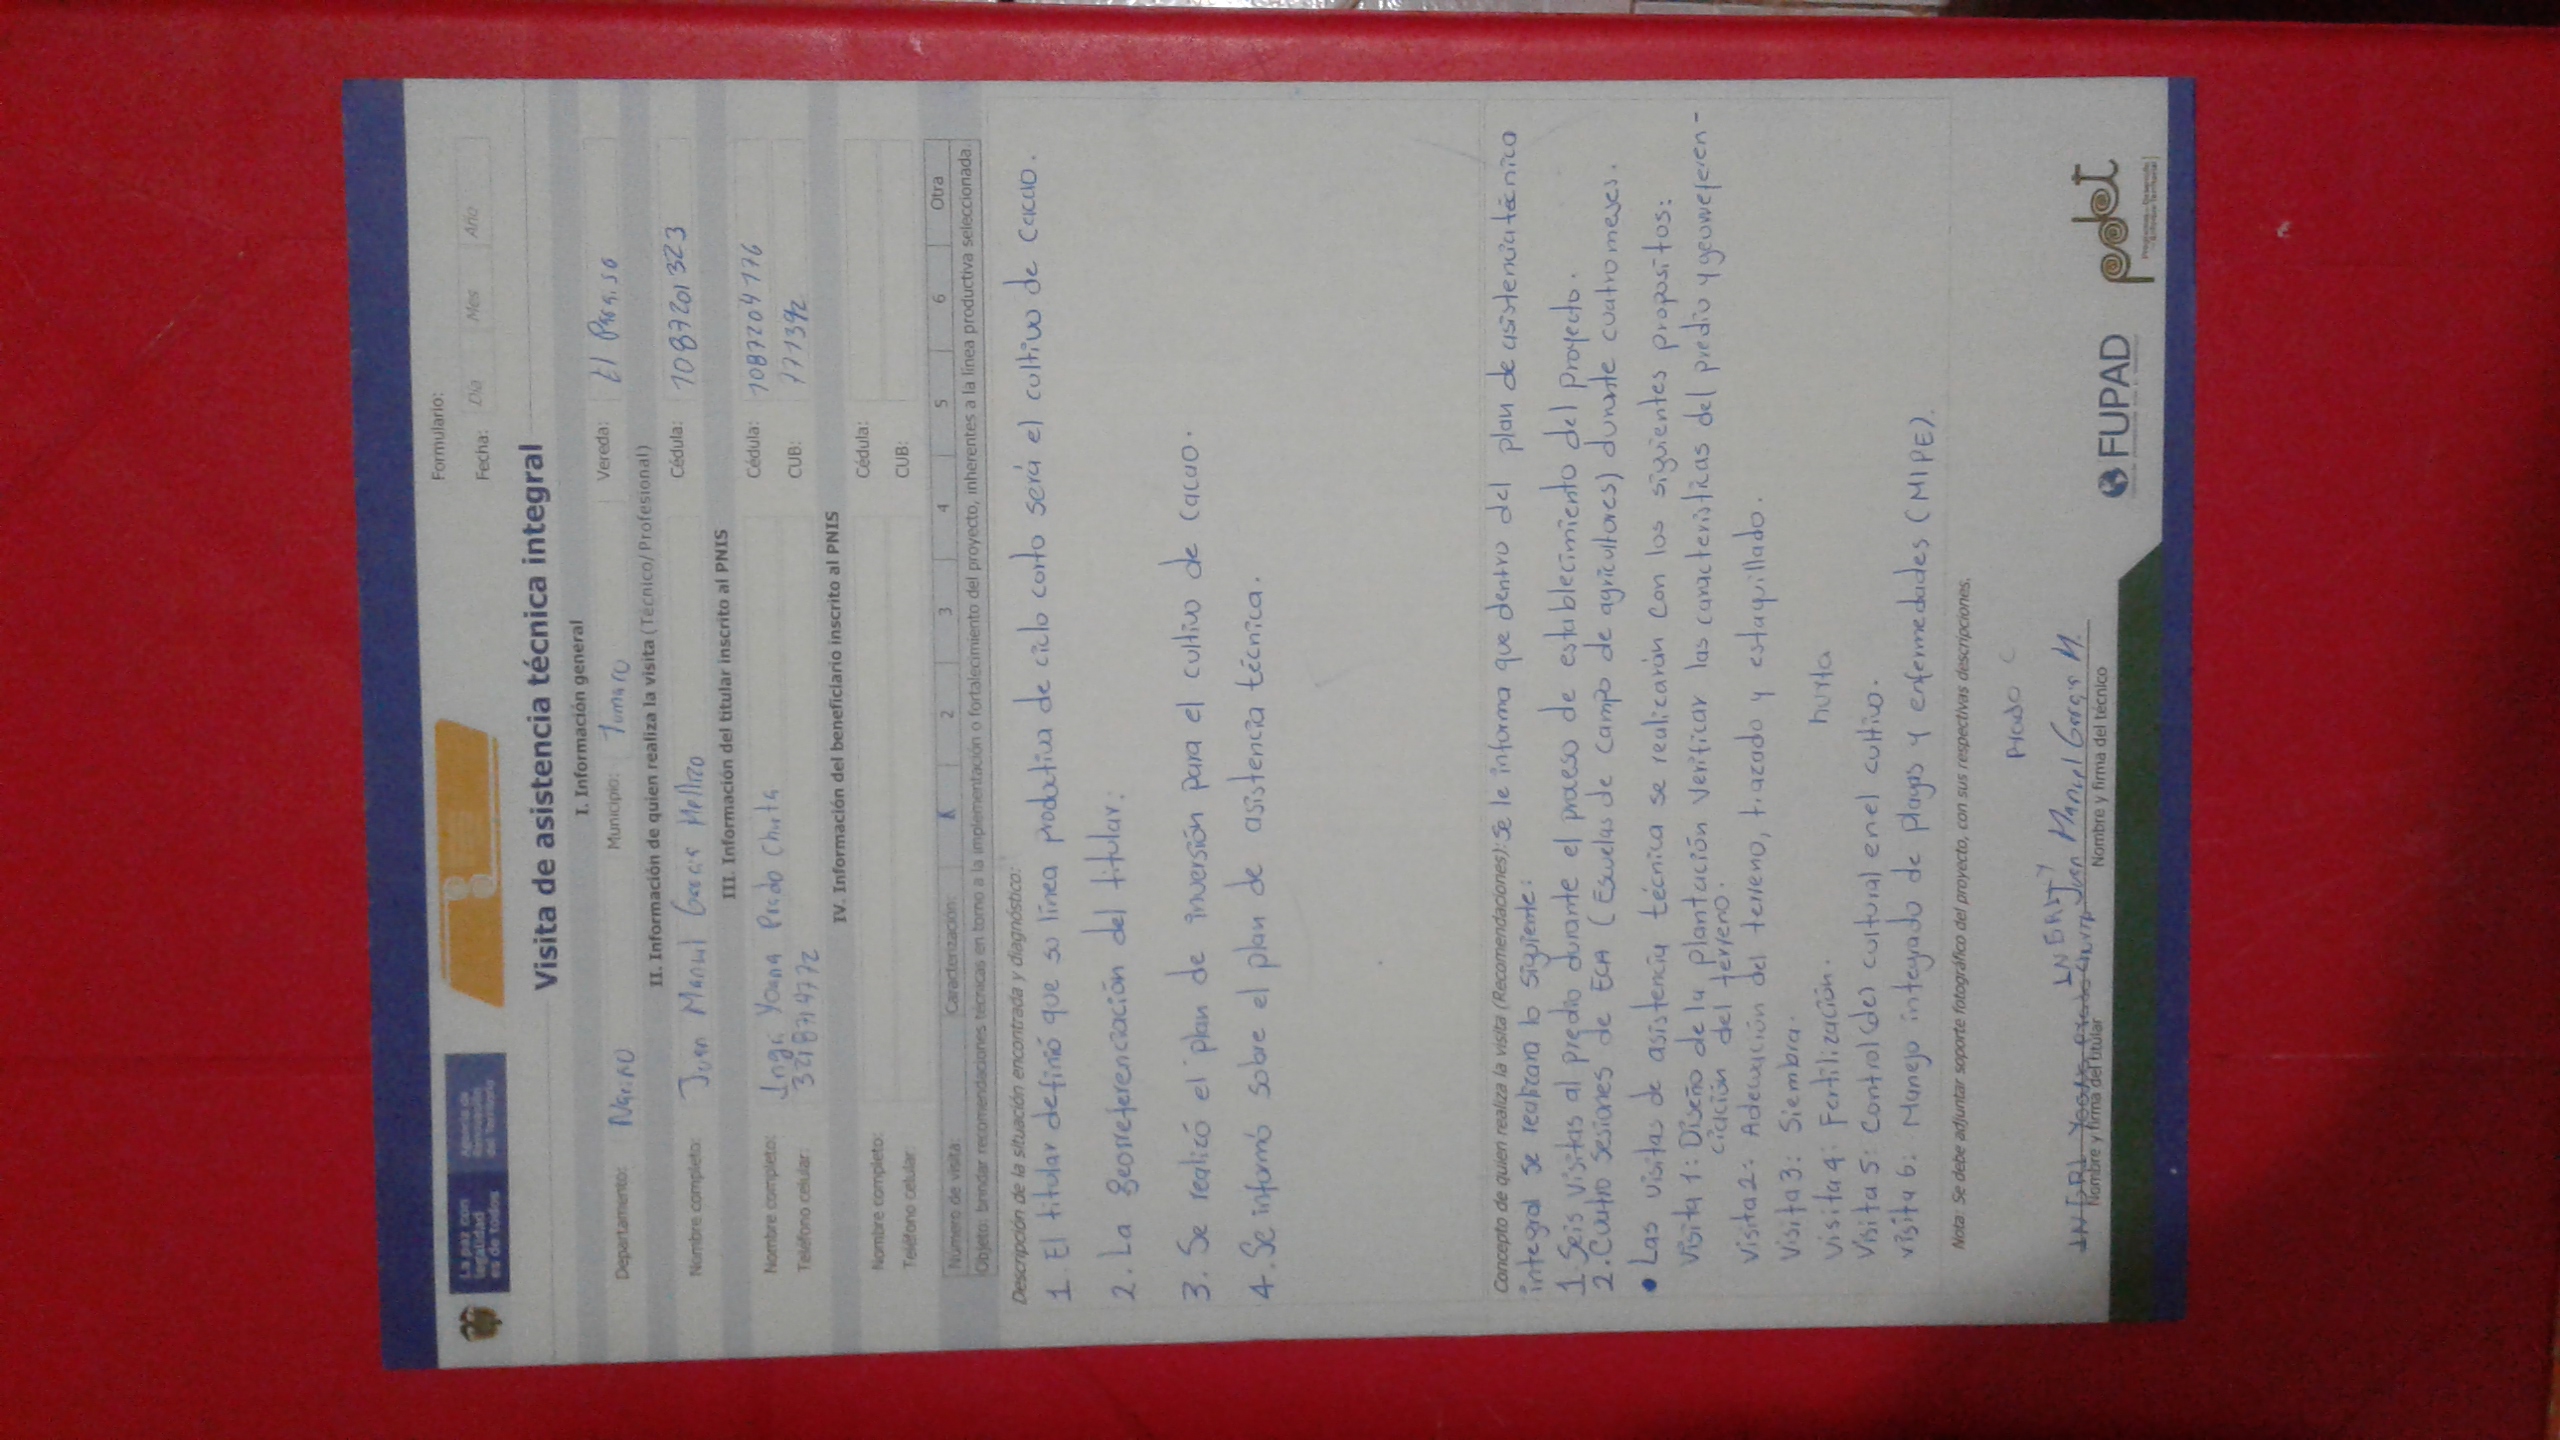 La paz con
legalidad
es de todos
Agencia de
Renovación
del Territorio
Formulario:
Fecha: Día Mes Año
Visita de asistencia técnica integral
I. Información general
Departamento: Nariño Municipio: Tumaco Vereda: El Paraiso
II. Información de quien realiza la visita (Técnico/Profesional)
Nombre completo: Juan Manuel Garcia Mellizo Cédula: 1087201323
III. Información del titular inscrito al PNIS
Nombre completo: Yoana Prado Churta Cédula: 1087204176
Teléfono celular: 3218714772 CUB: 171392
IV. Información del beneficiario inscrito al PNIS
Nombre completo: Cédula:
Teléfono celular: CUB:
Número de visita: Caracterización: 2 3 4 5 6 Otra
Objeto: brindar recomendaciones técnicas en torno a la implementación o fortalecimiento del proyecto, inherentes a la línea productiva seleccionada.
Descripción de la situación encontrada y diagnóstico:
1. El titular definió que su línea productiva de ciclo corto será el cultivo de cacao.
2. La georreferenciación del titular.
3. Se realizó el plan de inversión para el cultivo de cacao.
4. Se informó sobre el plan de asistencia técnica.
Concepto de quien realiza la visita (Recomendaciones): Se le informa que dentro del plan de asistencia técnico
integral se realizara lo siguiente:
1. Seis visitas al predio durante el proceso de establecimiento del proyecto.
2. Cuatro sesiones de ECA (Escuelas de campo de agricultores) durante cuatro meses.
• Las visitas de asistencia técnica se realicarán con los siguientes propositos:
Visita 1: Diseño de la plantación verificar las características del predio y georeferen-
ciación del terreno.
Visita 2: Adecuación del terreno, trazado y estaquillado.
Visita 3: Siembra.
Visita 4: Fertilización. hurta
Visita 5: Control (de) cultural en el cultivo.
Visita 6: Manejo integrado de plagas y enfermedades (MIPE).
Nota: Se debe adjuntar soporte fotográfico del proyecto, con sus respectivas descripciones.
PRADO C
Juan Manuel Garcia M.
Nombre y firma del titular Nombre y firma del técnico
FUPAD
pdet